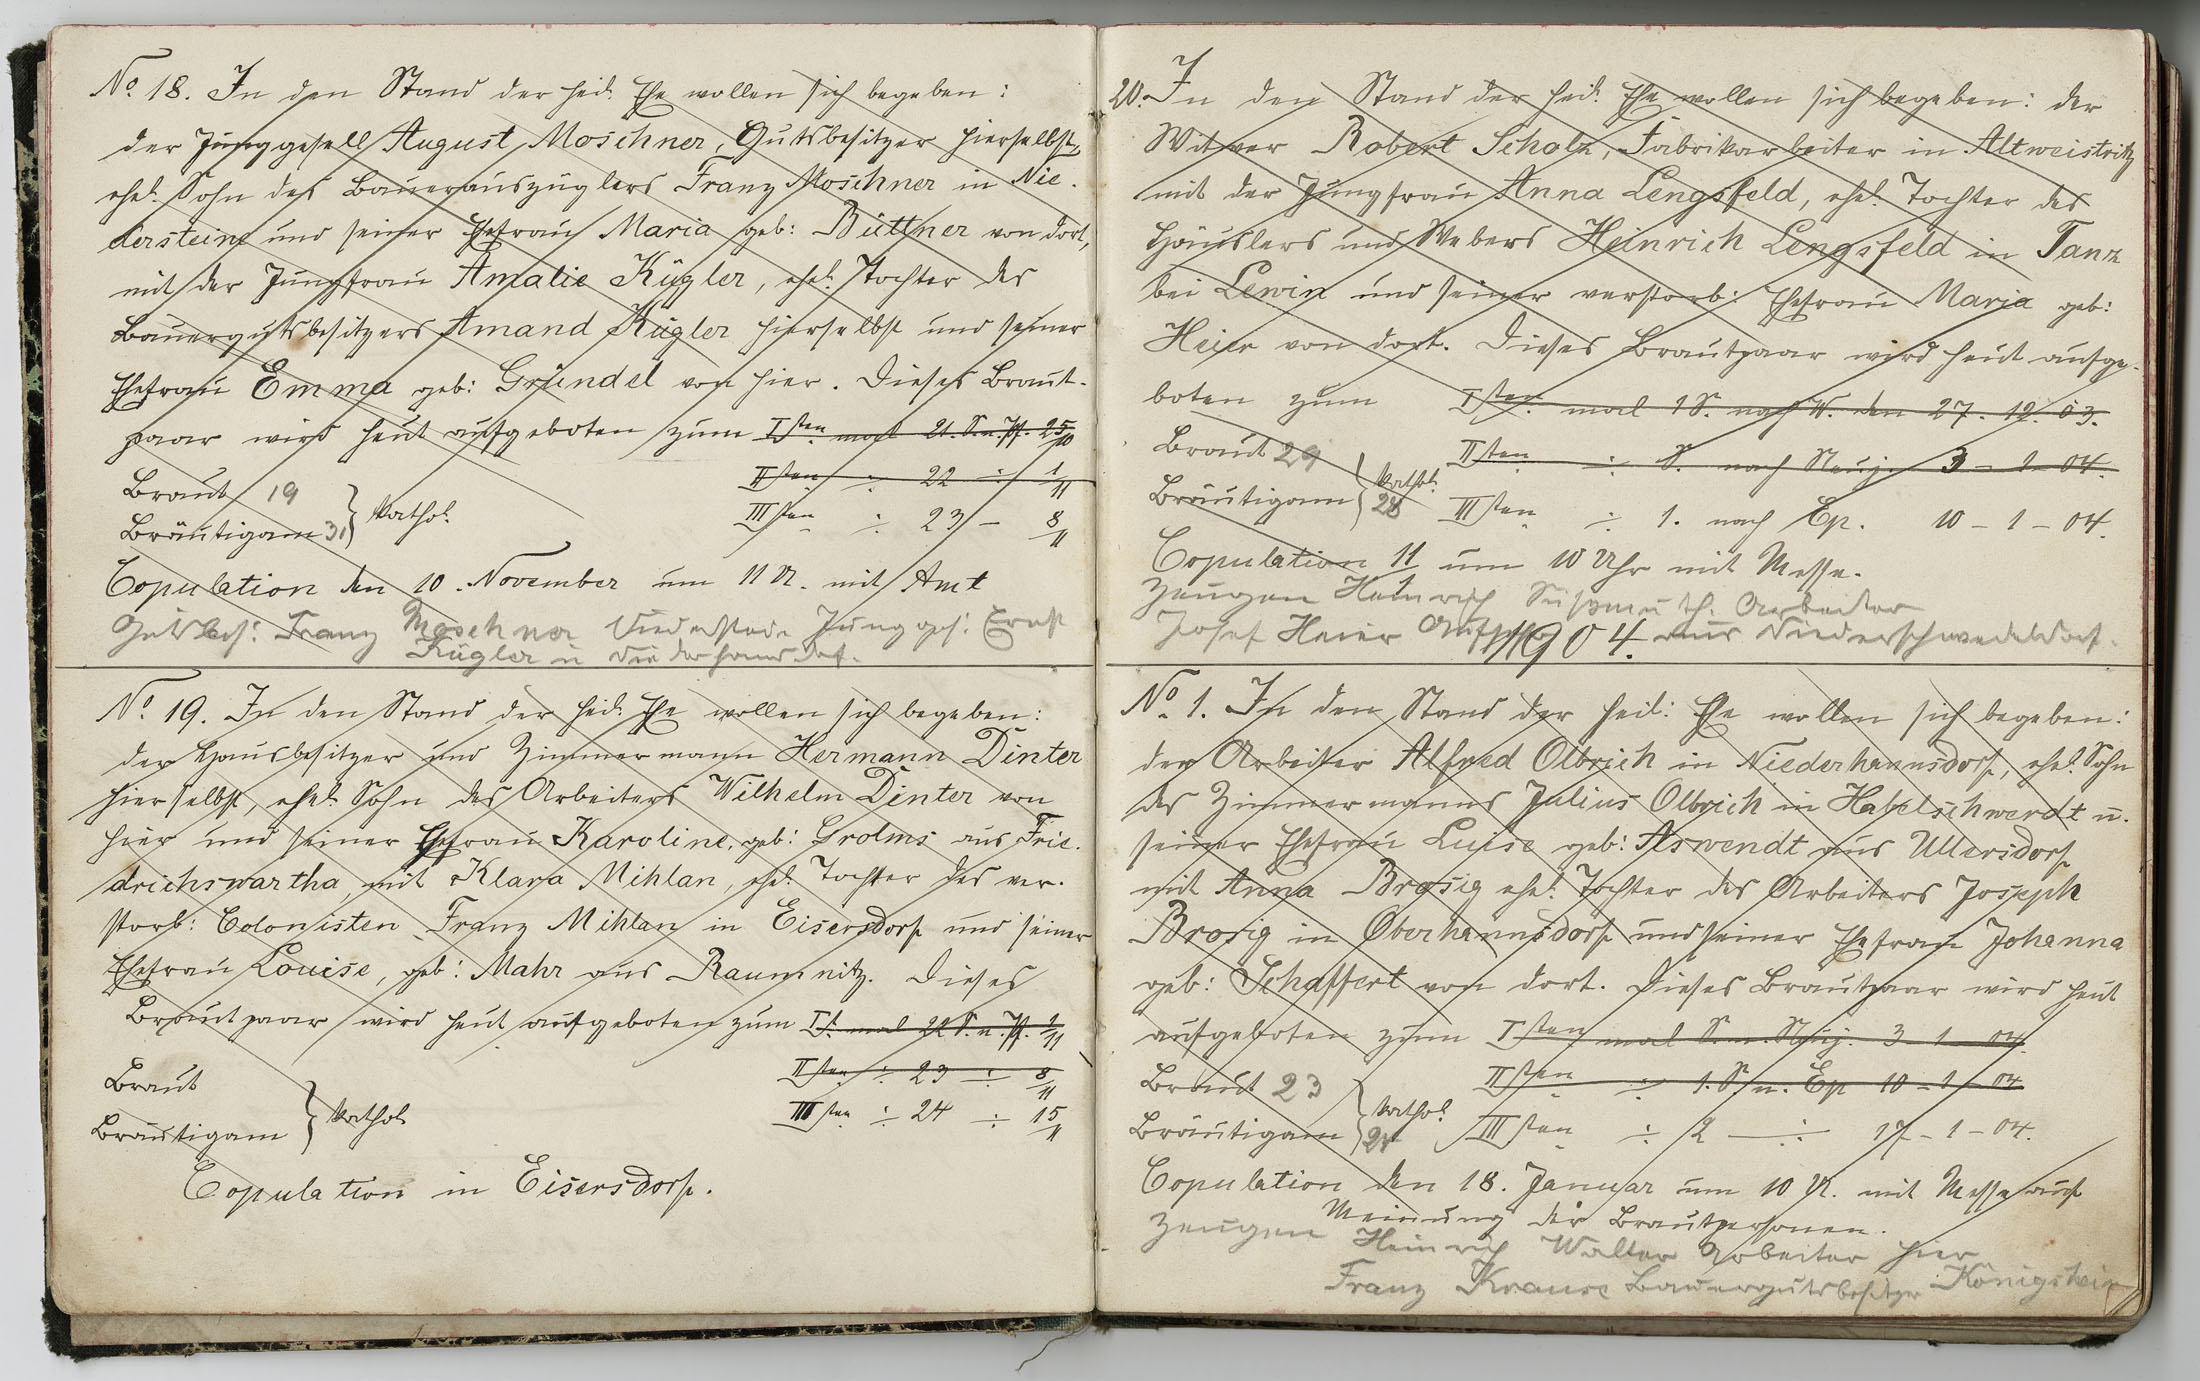 No. 18. In den Stand der heil. Ehe wollen sich begeben:
der Junggesell August Moschner, Gutsbesitzer hierselbst,
ehel. Sohn des Bauerauszüglers Franz Moschner in Nie-
dersteine und seiner Ehefrau Maria geb: Büttner von dort,
mit der Jungfrau Amalie Kügler, ehel. Tochter des
Bauergutsbesitzers Amand Kügler hierselbst und seiner
Ehefrau Emma geb: Gründel von hier. Dieses Braut-
paar wird heut aufgeboten zum Isten mal 21. S. n. Pf. 25/10
IIten ÷ 22 ÷ 1/11
Braut 19
Bräutigam 31 } kathol.
IIIten ÷ 23 – 8/11
Copulation den 10. November um 11 U. mit Amt
Gutsbes: Franz Moschner Junggeß: Ernst
Kügler
No. 19. In den Stand der heil. Ehe wollen sich begeben:
der Hausbesitzer und Zimmermann Hermann Dinter
hierselbst, ehel. Sohn des Arbeiters Wilhelm Dinter von
hier und seiner Ehefrau Karoline, geb: Grolms aus Frie-
drichswartha, mit Klara Mihlan, ehel. Tochter des ver-
storb: Colonisten Franz Mihlan in Eisersdorf und seiner
Ehefrau Louise, geb: Mahr aus Raumnitz. Dieses
Brautpaar wird heut aufgeboten zum It. mal 22 S. n. Pf. 1/11
IIten ÷ 23 ÷ 8/11
Braut
Bräutigam } kathol
IIIten ÷ 24 ÷ 15/11
Copulation in Eisersdorf.
20. In den Stand der heil. Ehe wollen sich begeben: der
Witwer Robert Scholz, Fabrikarbeiter in Altweistritz
mit der Jungfrau Anna Lengsfeld, ehel. Tochter des
Häuslers und Webers Heinrich Lengsfeld in Tanz
bei Lewin und seiner verstorb: Ehefrau Maria geb:
Heier von dort. Dieses Brautpaar wird heut aufge-
boten zum Isten mal 1 S. nach W. den 27. 12. 03.
Braut 29 IIten ÷ S. nach Neuj. 3 – 1 – 04.
Bräutigam } kathol. 28 IIIten ÷ 1. nach Ep. 10 – 1 – 04.
Copulation 11/1 um 10 Uhr mit Messe.
Zeugen Heinrich Arbeiter
Josef Heier aus Niederschwedeldorf.
1904.
No. 1. In den Stand der heil: Ehe wollen sich begeben:
der Arbeiter Alfred Olbrich in Niederhannsdorf, ehel. Sohn
des Zimmermanns Julius Olbrich in Habelschwerdt u.
seiner Ehefrau Luise geb: Aswendt aus Ullersdorf
mit Anna Brosig ehel. Tochter des Arbeiters Joseph
Brosig in Oberhannsdorf und seiner Ehefrau Johanna
geb: Schaffert von dort. Dieses Brautpaar wird heut
aufgeboten zum Isten mal S. n. Neuj. 3 – 1 – 04.
Braut 23 IIten ÷ 1. S. n. Ep 10 – 1 – 04
Bräutigam } kathol. IIIten ÷ 2 – ÷ 17 – 1 – 04.
Copulation den 18. Januar um 10 U. mit Messe auf
Meinung der Brautpersonen.
Zeugen Heinrich Walter Arbeiter hier
Franz Krause Bauergutsbesitzer Königshain